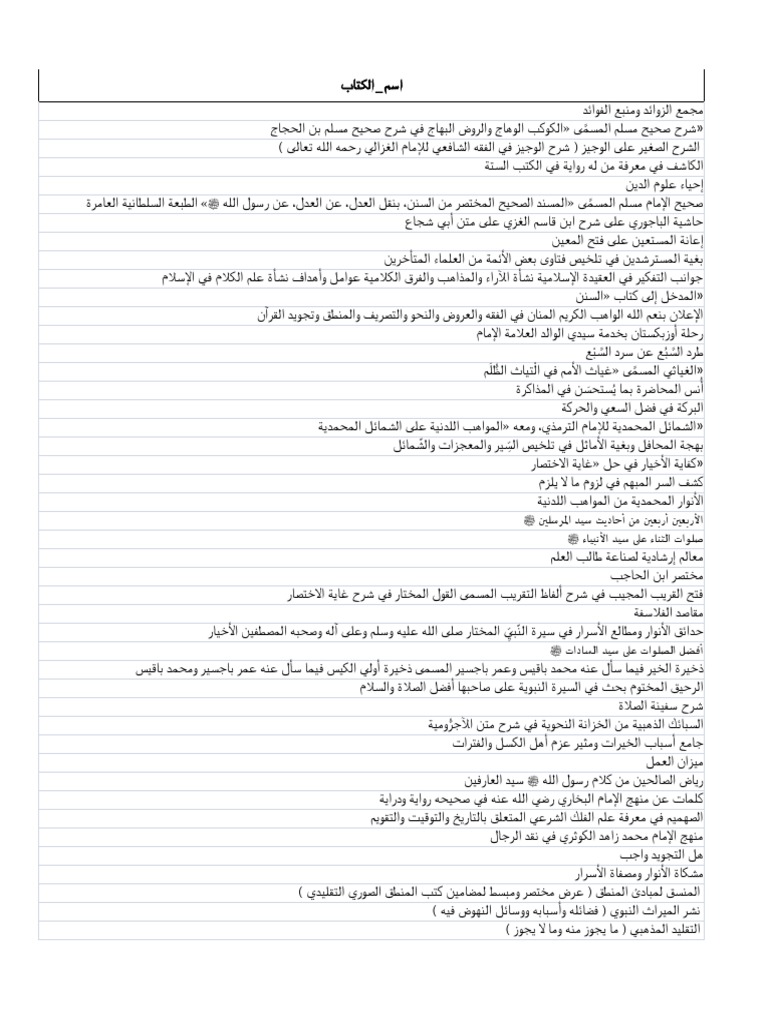 اسم_الكتاب
مجمع الزوائد ومنبع الفوائد
«شرح صحيح مسلم المسمّى «الكوكب الوهاج والروض البهاج في شرح صحيح مسلم بن الحجاج
الشرح الصغير على الوجيز ( شرح الوجيز في الفقه الشافعي للإمام الغزالي رحمه الله تعالى )
الكاشف في معرفة من له رواية في الكتب الستة
إحياء علوم الدين
صحيح الإمام مسلم المسمّى «المسند الصحيح المختصر من السنن، بنقل العدل، عن العدل، عن رسول الله ﷺ» الطبعة السلطانية العامرة
حاشية الباجوري على شرح ابن قاسم الغزي على متن أبي شجاع
إعانة المستعين على فتح المعين
بغية المسترشدين في تلخيص فتاوى بعض الأئمة من العلماء المتأخرين
جوانب التفكير في العقيدة الإسلامية نشأة الآراء والمذاهب والفرق الكلامية عوامل وأهداف نشأة علم الكلام في الإسلام
«المدخل إلى كتاب «السنن
الإعلان بنعم الله الواهب الكريم المنان في الفقه والعروض والنحو والتصريف والمنطق وتجويد القرآن
رحلة أوزبكستان بخدمة سيدي الوالد العلامة الإمام
طرد السَّبُع عن سرد السَّبْع
«الغياثي المسمّى «غياث الأمم في الْتياث الظُّلَم
أُنس المحاضرة بما يُستحسَن في المذاكرة
البركة في فضل السعي والحركة
«الشمائل المحمدية للإمام الترمذي، ومعه «المواهب اللدنية على الشمائل المحمدية
بهجة المحافل وبغية الأماثل في تلخيص السِّير والمعجزات والشَّمائل
«كفاية الأخيار في حل «غاية الاختصار
كشف السر المبهم في لزوم ما لا يلزم
الأنوار المحمدية من المواهب اللدنية
الأربعين أربعين من أحاديث سيد المرسلين ﷺ
صلوات الثناء على سيد الأنبياء ﷺ
معالم إرشادية لصناعة طالب العلم
مختصر ابن الحاجب
فتح القريب المجيب في شرح ألفاظ التقريب المسمى القول المختار في شرح غاية الاختصار
مقاصد الفلاسفة
حدائق الأنوار ومطالع الأسرار في سيرة النّبيّ المختار صلى الله عليه وسلم وعلى آله وصحبه المصطفين الأخيار
أفضل الصلوات على سيد السادات ﷺ
ذخيرة الخير فيما سأل عنه محمد باقيس وعمر باجسير المسمى ذخيرة أولي الكيس فيما سأل عنه عمر باجسير ومحمد باقيس
الرحيق المختوم بحث في السيرة النبوية على صاحبها أفضل الصلاة والسلام
شرح سفينة الصلاة
السبائك الذهبية من الخزانة النحوية في شرح متن الآجرُّومية
جامع أسباب الخيرات ومثير عزم أهل الكسل والفترات
ميزان العمل
رياض الصالحين من كلام رسول الله ﷺ سيد العارفين
كلمات عن منهج الإمام البخاري رضي الله عنه في صحيحه رواية ودراية
الصهميم في معرفة علم الفلك الشرعي المتعلق بالتاريخ والتوقيت والتقويم
منهج الإمام محمد زاهد الكوثري في نقد الرجال
هل التجويد واجب
مشكاة الأنوار ومصفاة الأسرار
المنسق لمبادئ المنطق ( عرض مختصر ومبسط لمضامين كتب المنطق الصوري التقليدي )
نشر الميراث النبوي ( فضائله وأسبابه ووسائل النهوض فيه )
التقليد المذهبي ( ما يجوز منه وما لا يجوز )